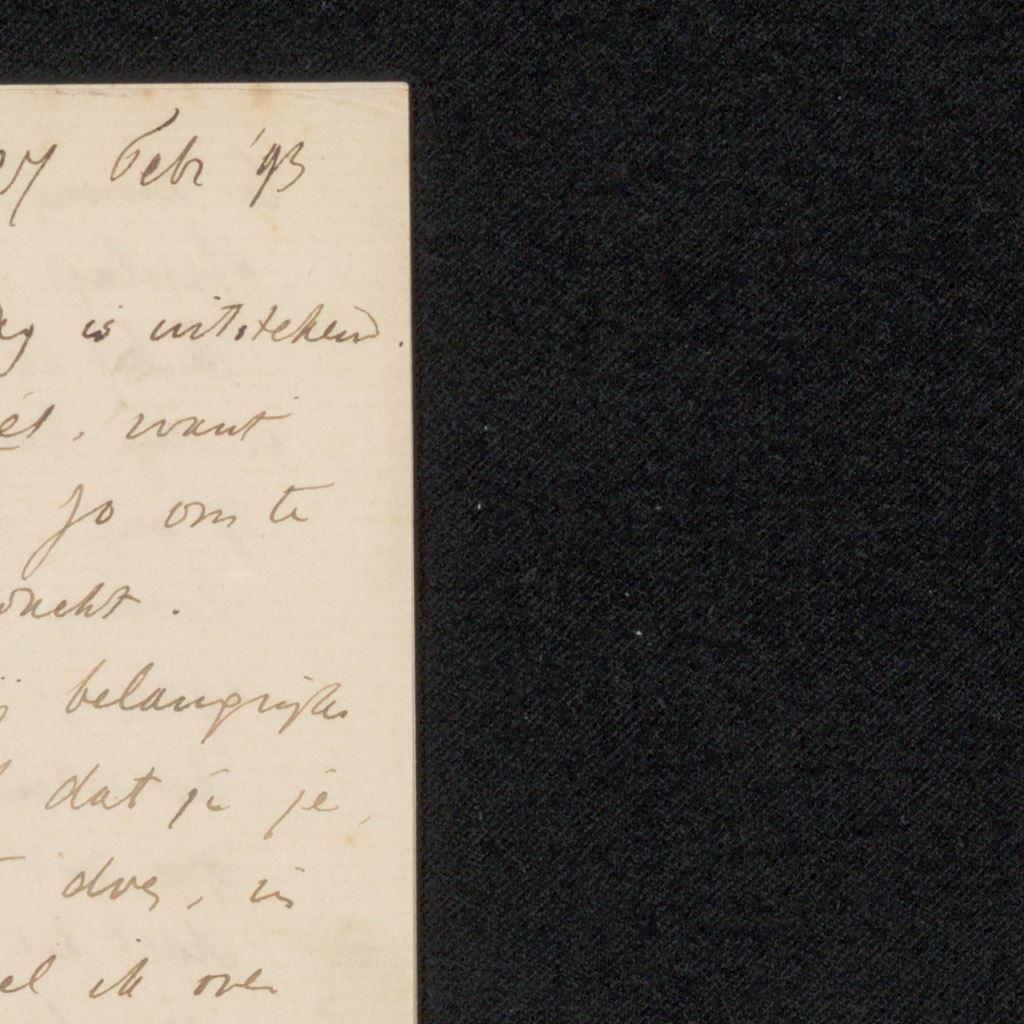 27 Febr '93
is uitstekend.
want
Jo om te
wacht.
belangrijks
dat je je,
doet, in
el ik over